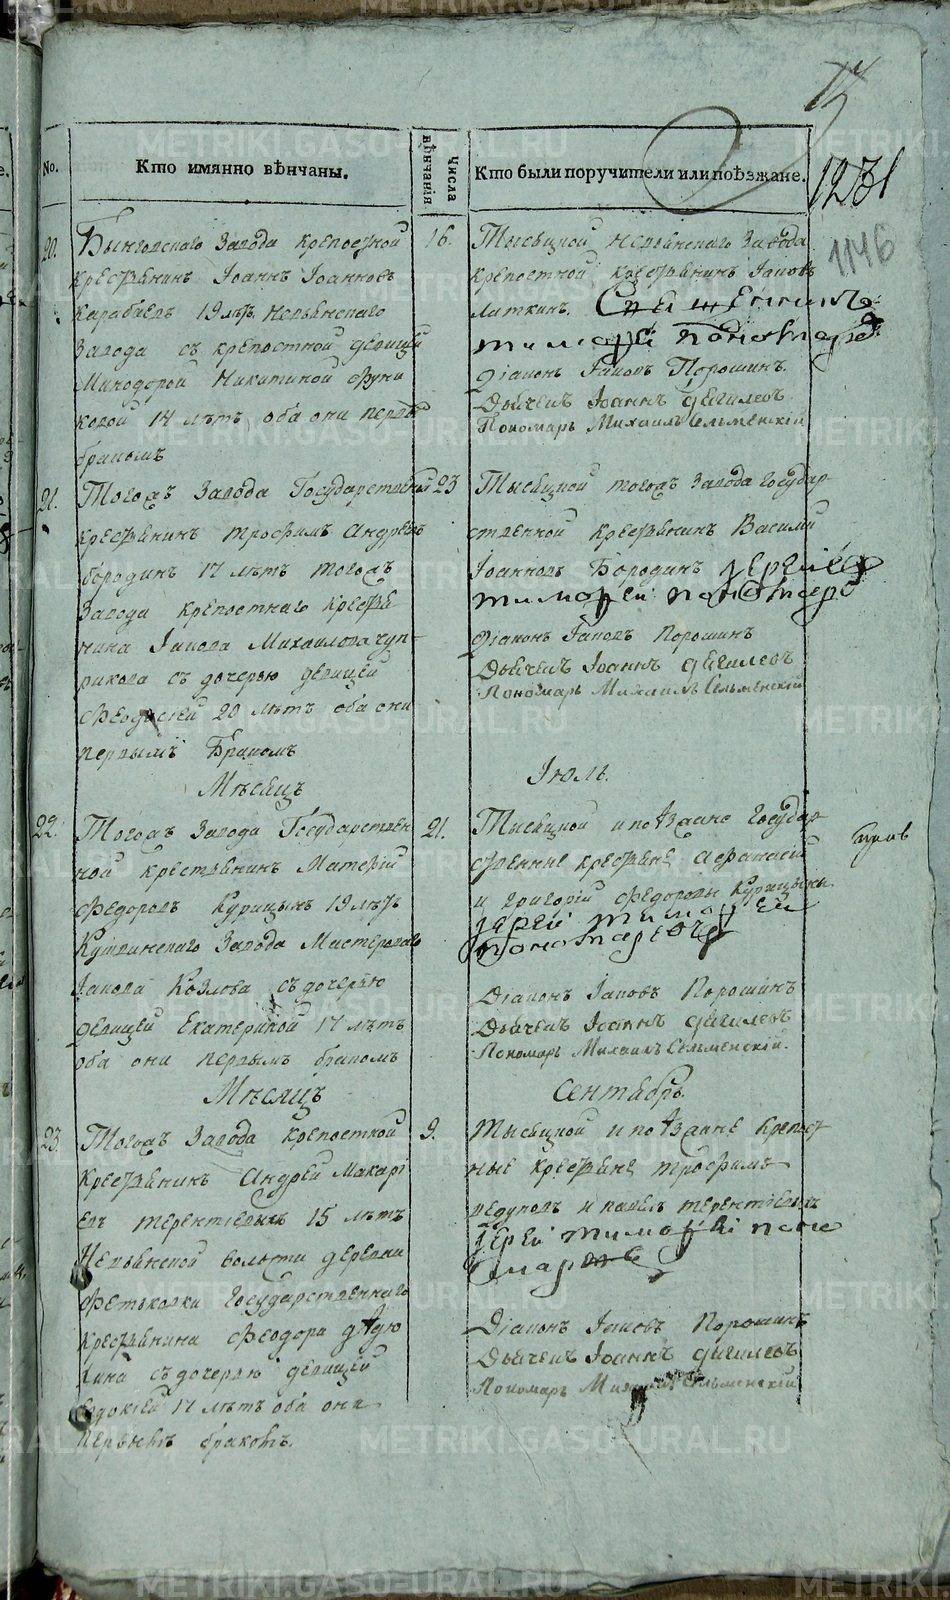 1231
1146
No.
Кто имянно вѣнчаны.
Числа вѣнчанія
Кто были поручители или поѣзжане.
20.
Бынговскаго Завода крепостной
крестьянинъ Іоаннъ Іоанновъ
Карабаевъ 19 лѣтъ. Невьянскаго
Завода съ крепостной девицей
Минодорой Никитиной
14 лѣтъ, оба они первы
бракомъ
16.
Тысяцкой Невьянскаго Завода
крепостной крестьянинъ Іаковъ
Латкинъ. Священникъ
тимофей пономаревъ
Діаконъ Іаковъ Порошинъ.
Дьячекъ Іоаннъ Дягилевъ
Пономарь Михаилъ Сельменскій
21.
Тогожъ Завода Государственной
крестьянинъ трофимъ Андреевъ
бородинъ 17 лѣтъ тогожъ
Завода крепостнаго крестья
нина Іакова Михаилова чуп-
рикова съ дочерью девицей
Феодосіей 20 лѣтъ оба они
первымъ бракомъ
23
Тысяцкой тогожъ Завода государ-
ственной крестьянинъ Василий
Іоанновъ Бородинъ іереи
тимофеи пономаревъ
Діаконъ Іаковъ Порошинъ
Дьячекъ Іоаннъ Дягилевъ
Пономарь Михаилъ Сельменскій
Мѣсяцъ
Іюль.
22.
Тогожъ Завода Государствен
ной крестьянинъ
Федоровъ Курицынъ 19 лѣтъ
Завода Мастероваго
Іакова Козлова съ дочерью
девицей Екатериной 17 лѣтъ
оба они первымъ бракомъ
21.
Тысяцкой и поезжане Государ-
ственные крестьяне Афанасій
и григорій Федоровы Курицыны
іереи тимофеи
пономаревъ
Діаконъ Іаковъ Порошинъ
Дьячекъ Іоаннъ Дягилевъ
Пономарь Михаилъ Сельменскій.
Мѣсяцъ
Сентябрь.
23.
Тогожъ Завода крепостной
крестьянинъ Андрей Макарі
евъ терентьевыхъ 15 лѣтъ
Невьянской волости деревни
Фетьковки Государственнаго
крестьянина Феодора дѣдю
хина съ дочерью девицей
Евдокіей 17 лѣтъ оба они
первымъ бракомъ.
9.
Тысяцкой и поезжане крепост
ные крестьяне трофимъ
и павелъ терентьевыхъ
іереи тимофеи поно
маревъ
Діаконъ Іаковъ Порошинъ
Дьячекъ Іоаннъ Дягилевъ
Пономарь Михаилъ Сельменскій
METRIKI.GASO-URAL.RU